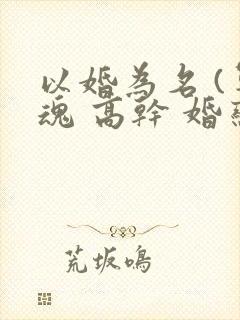 以婚為名(
魂 高幹 婚
荒坂鳴